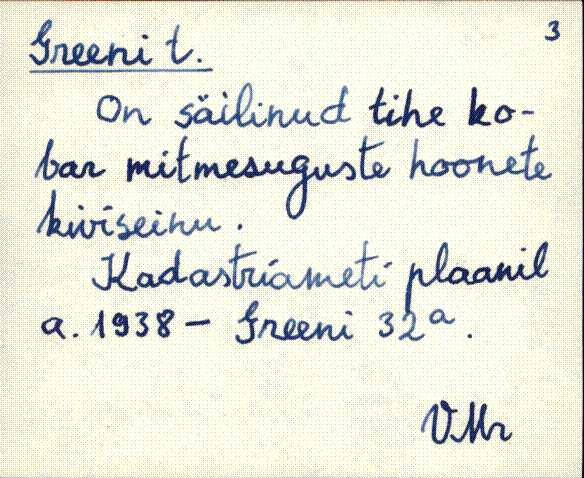 3
Greeni t.
On säilinud tihe ko-
bar mitmesuguste hoonete
kiviseinu.
Kadastriameti plaanil
a. 1938 – Greeni 32a.
VMr